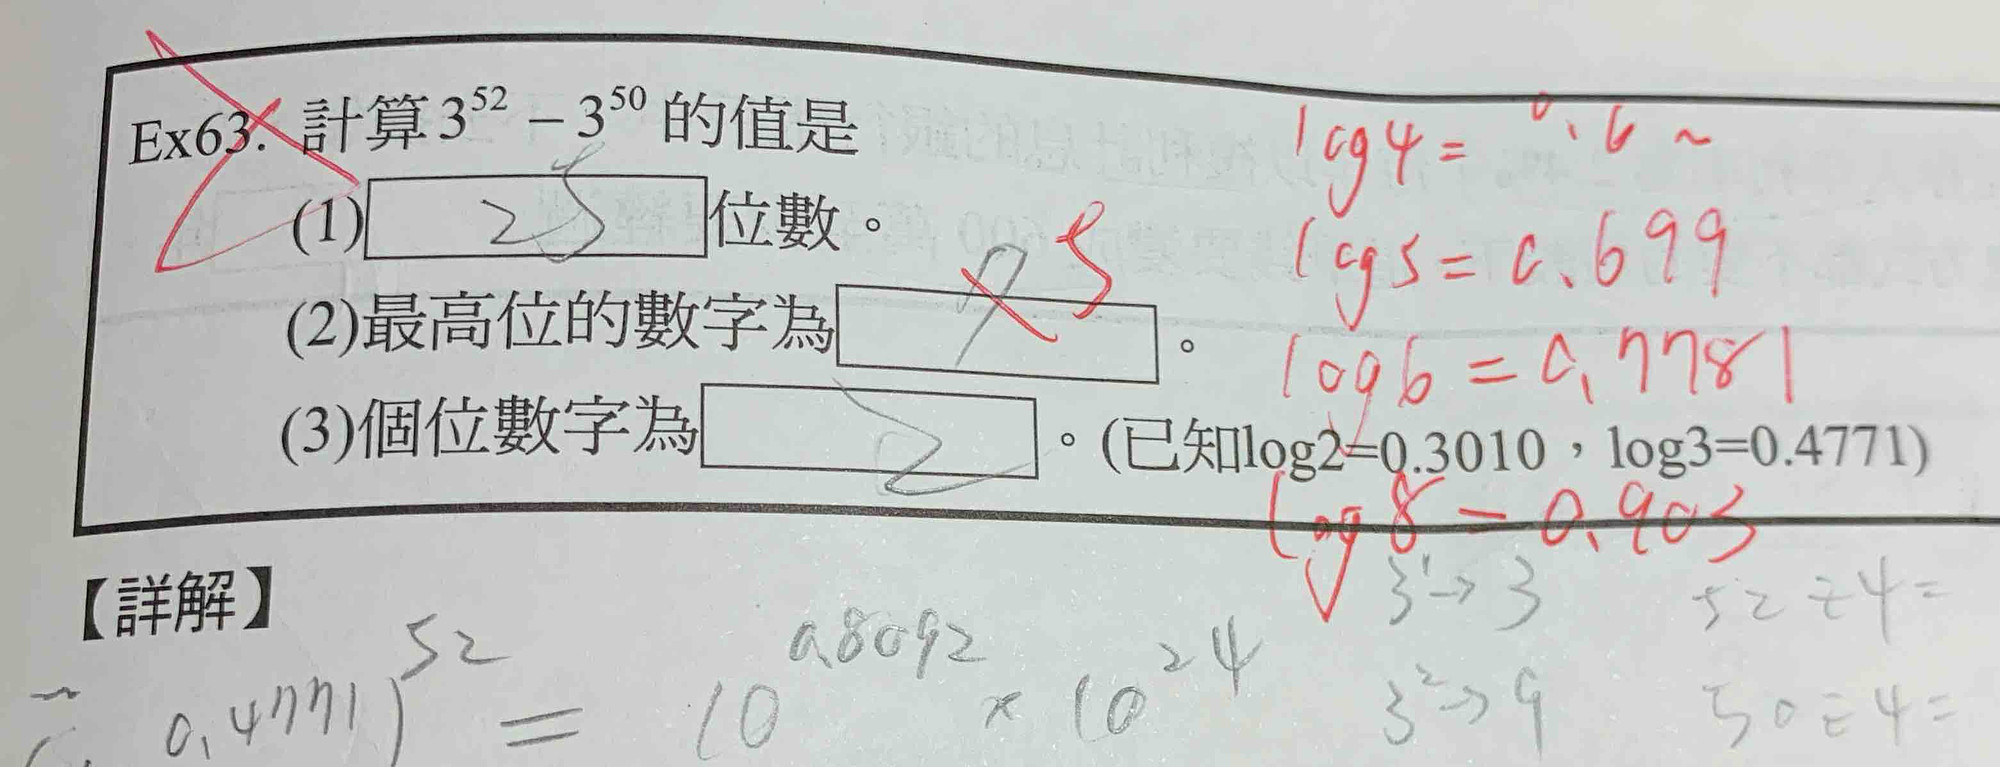 Ex63. 計算 3^52 − 3^50 的值是
(1) 25 位數。
(2)最高位的數字為 7 5 。
(3)個位數字為 2 。(已知log2=0.3010，log3=0.4771)
log4 = 0.6 ~
log5 = 0.699
log6 = 0.7781
log8 = 0.903
【詳解】
3^1 → 3 52 ÷ 4 =
0.4771)^52 = 10^0.8092 × 10^24
3^2 → 9 50 ÷ 4 =